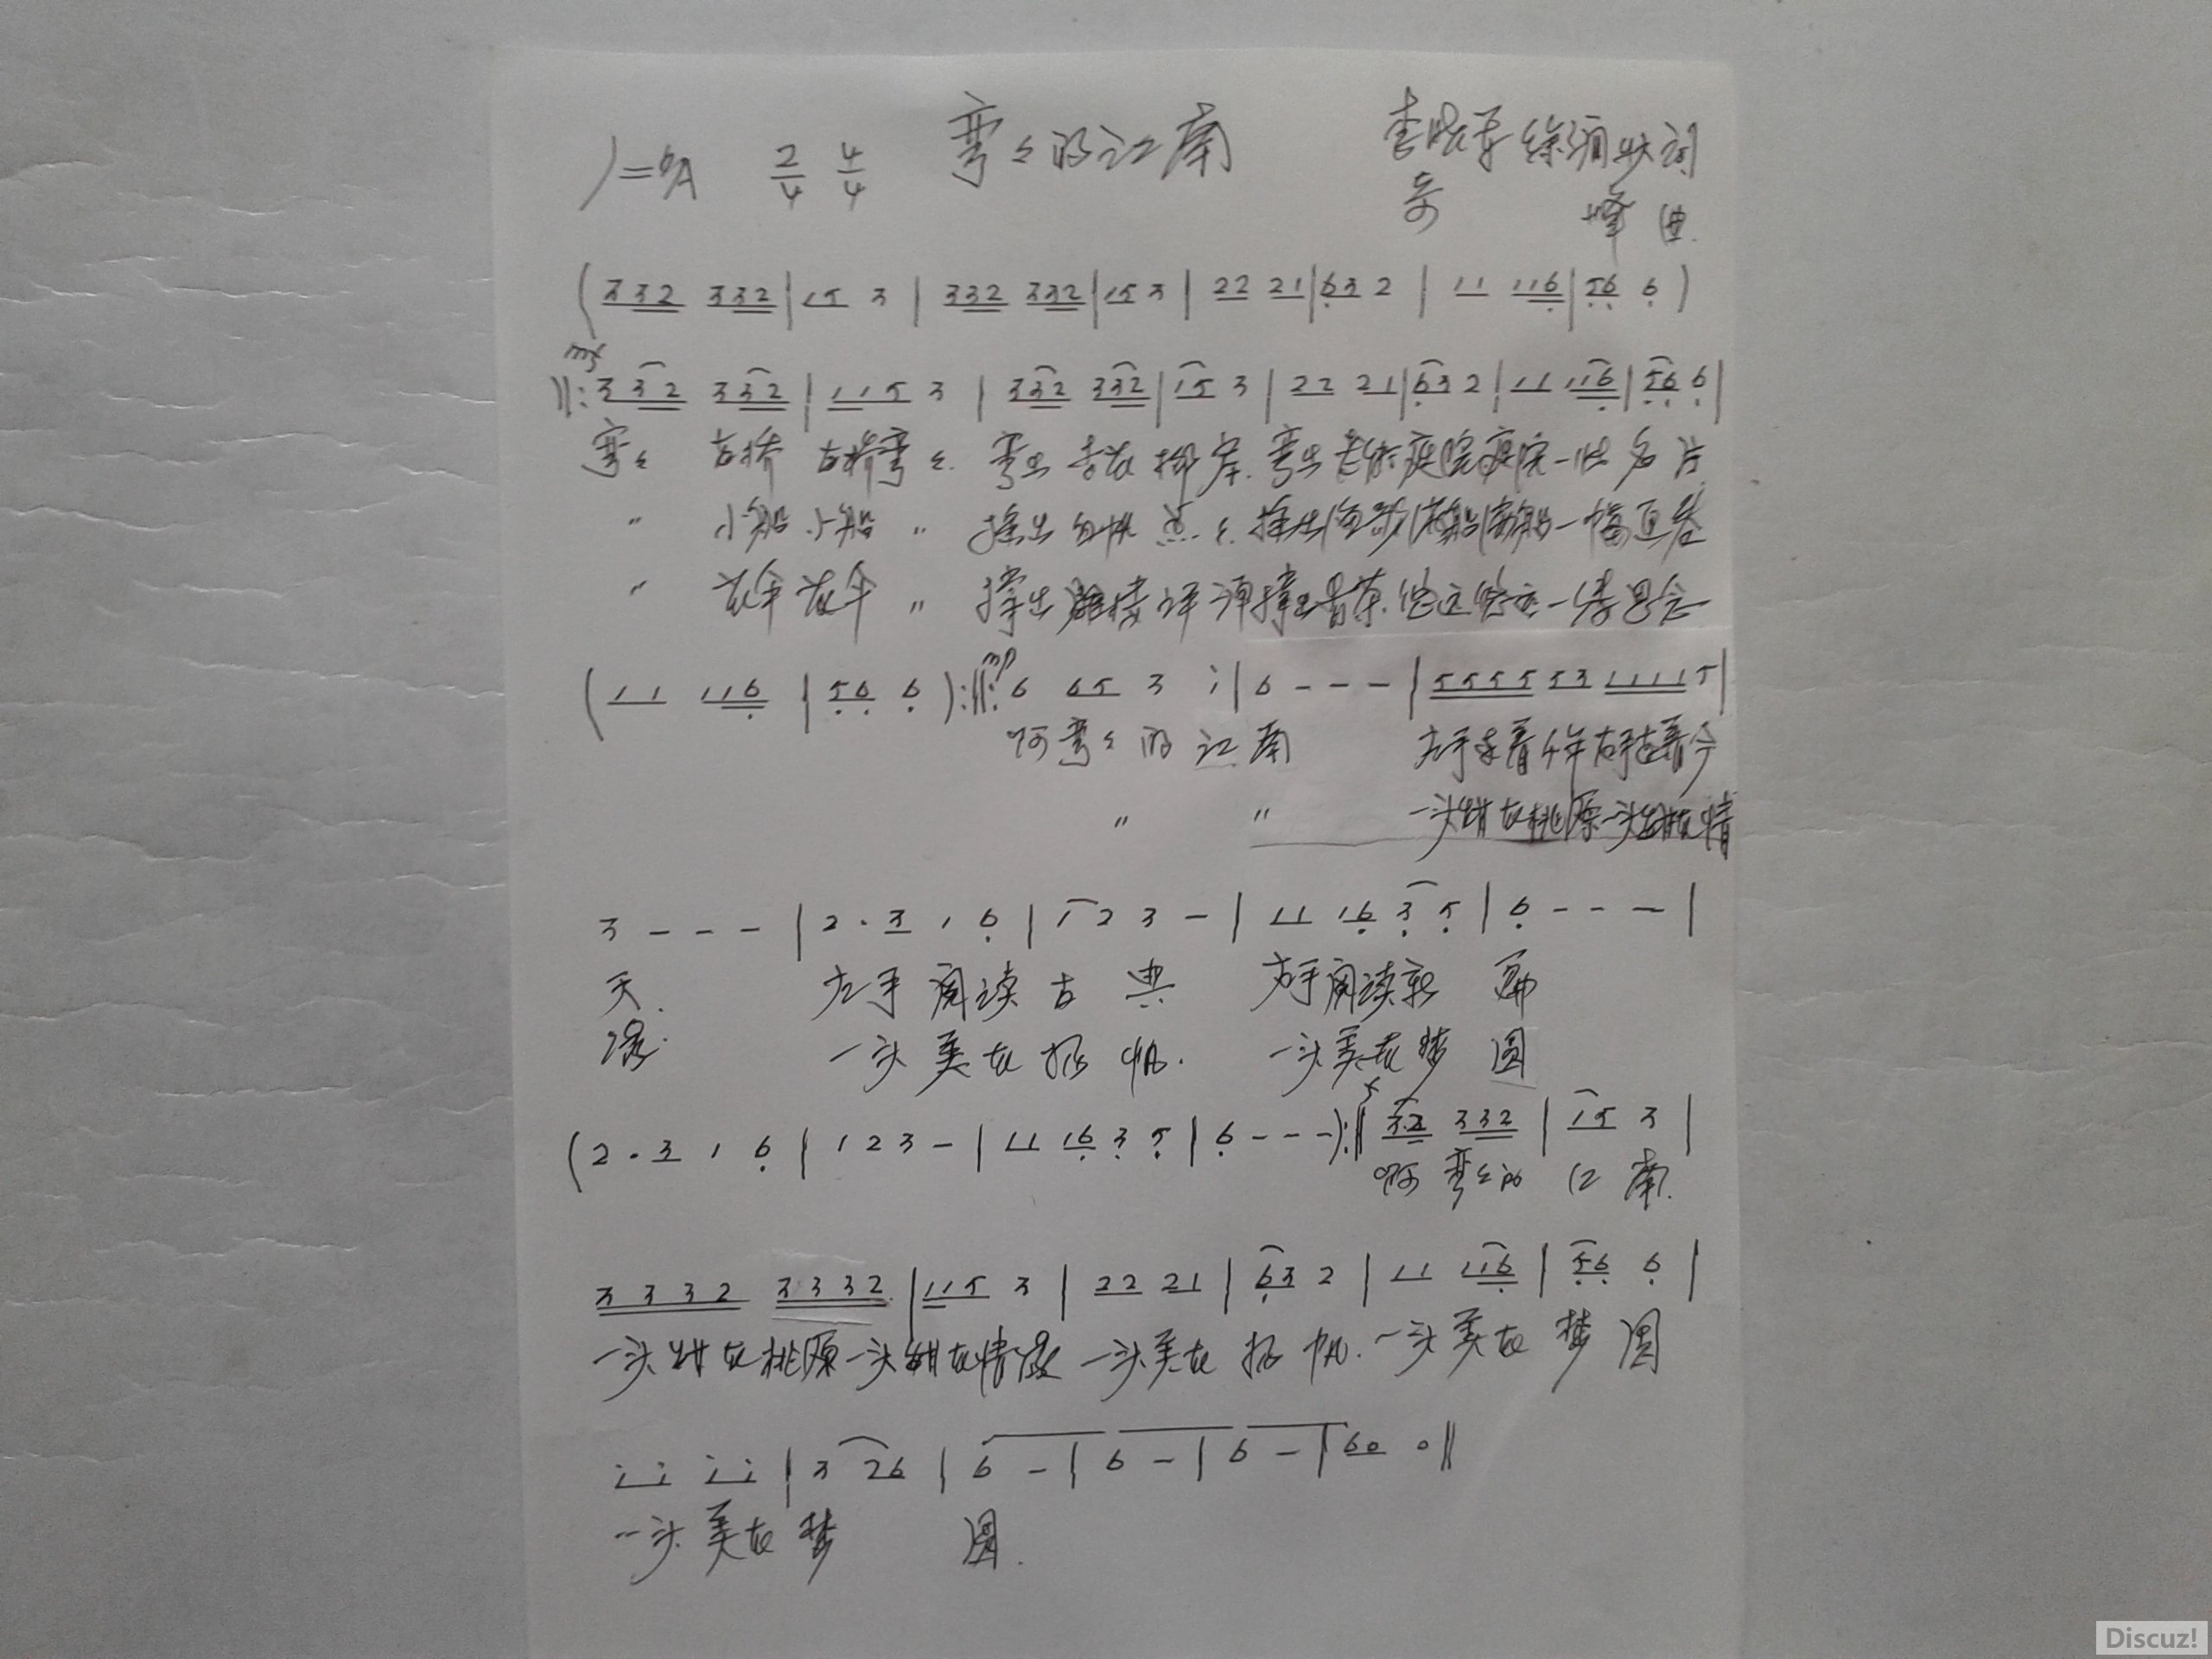 1=♭A 2/4 4/4 弯々的江南 徐 词
峰 曲.
( 332 332 | 15 3 | 332 332 | 15 3 | 22 21 | 63 2 | 11 116 | 56 6 )
mf
‖: 332 332 | 115 3 | 332 332 | 15 3 | 22 21 | 63 2 | 11 116 | 56 6 |
弯々 古桥 古桥弯々. 弯出 杏花 柳岸. 弯出 庭院庭院一 名片
〃 小船 小船 〃 摇出 白帆 点々. 摇出 一幅画卷
〃 花伞 花伞 〃 撑出 撑出 一 思念
mp
( 11 116 | 56 6 ) :‖: 6 65 3 i | 6 - - - | 5555 53 1111 5 |
啊弯々的江南 左手 着千年右手 着今
〃 〃 一头甜在桃源一头甜在情
3 - - - | 2 · 3 1 6 | 1 2 3 - | 11 16 3 5 | 6 - - - |
天. 左手阅读古典 右手阅读新篇
深. 一头美在扬帆. 一头美在梦圆
f
( 2 · 3 1 6 | 1 2 3 - | 11 16 3 5 | 6 - - - ) :‖ 3·2 332 | 15 3 |
啊弯々的江南.
3332 3332 | 115 3 | 22 21 | 63 2 | 11 116 | 56 6 |
一头甜在桃源一头甜在情深 一头美在扬帆. 一头美在梦圆
i i i i | 3 26 | 6 - | 6 - | 6 - | 60 0 ‖
一头美在梦 圆.
Discuz!